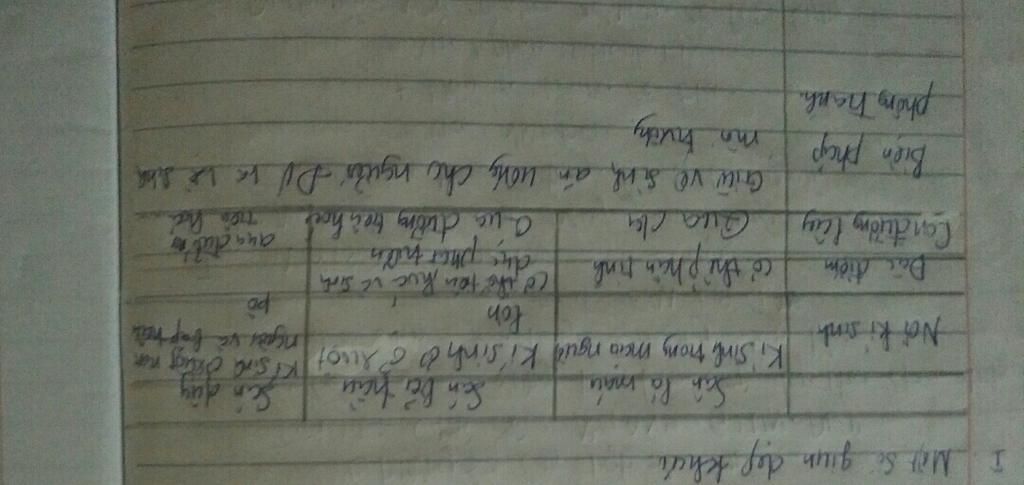 I Một số giun dẹp khác
Sán lá máu Sán bã trầu Sán dây
Nơi kí sinh Kí sinh trong máu người Kí sinh ở ruột lợn Kí sinh ở ruột non người và cơ bắp trâu bò
Đặc điểm có thể phân tính có
Con đường lây Qua da Qua đường tiêu hoá qua đường tiêu hoá
Biện pháp phòng tránh Giữ vệ sinh, ăn uống cho người - ĐV và vệ sinh môi trường